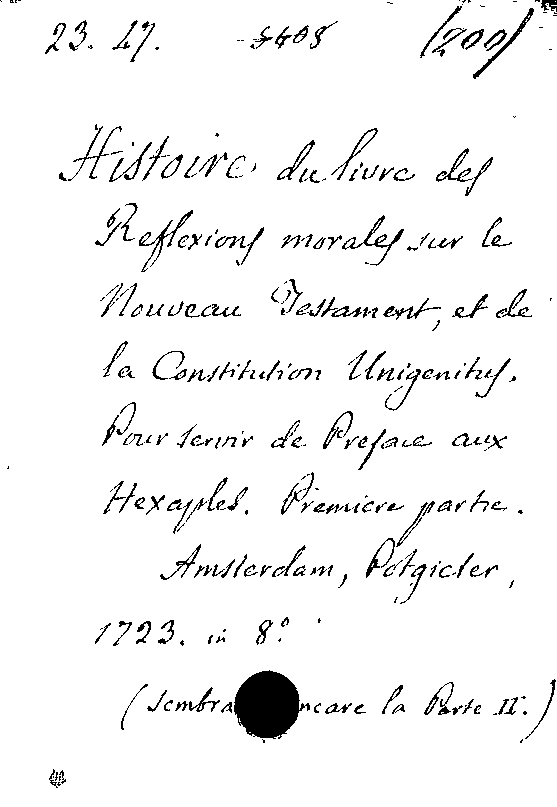 23. 47. 5608 (200)
Histoire du livre des
Reflexions morales sur le
Nouveau Testament, et de
la Constitution Unigenitus.
Pour servir de Preface aux
Hexaples. Premiere partie.
Amsterdam, Potgieter,
1723. in 8º
(sembra ncare la Parte II.)